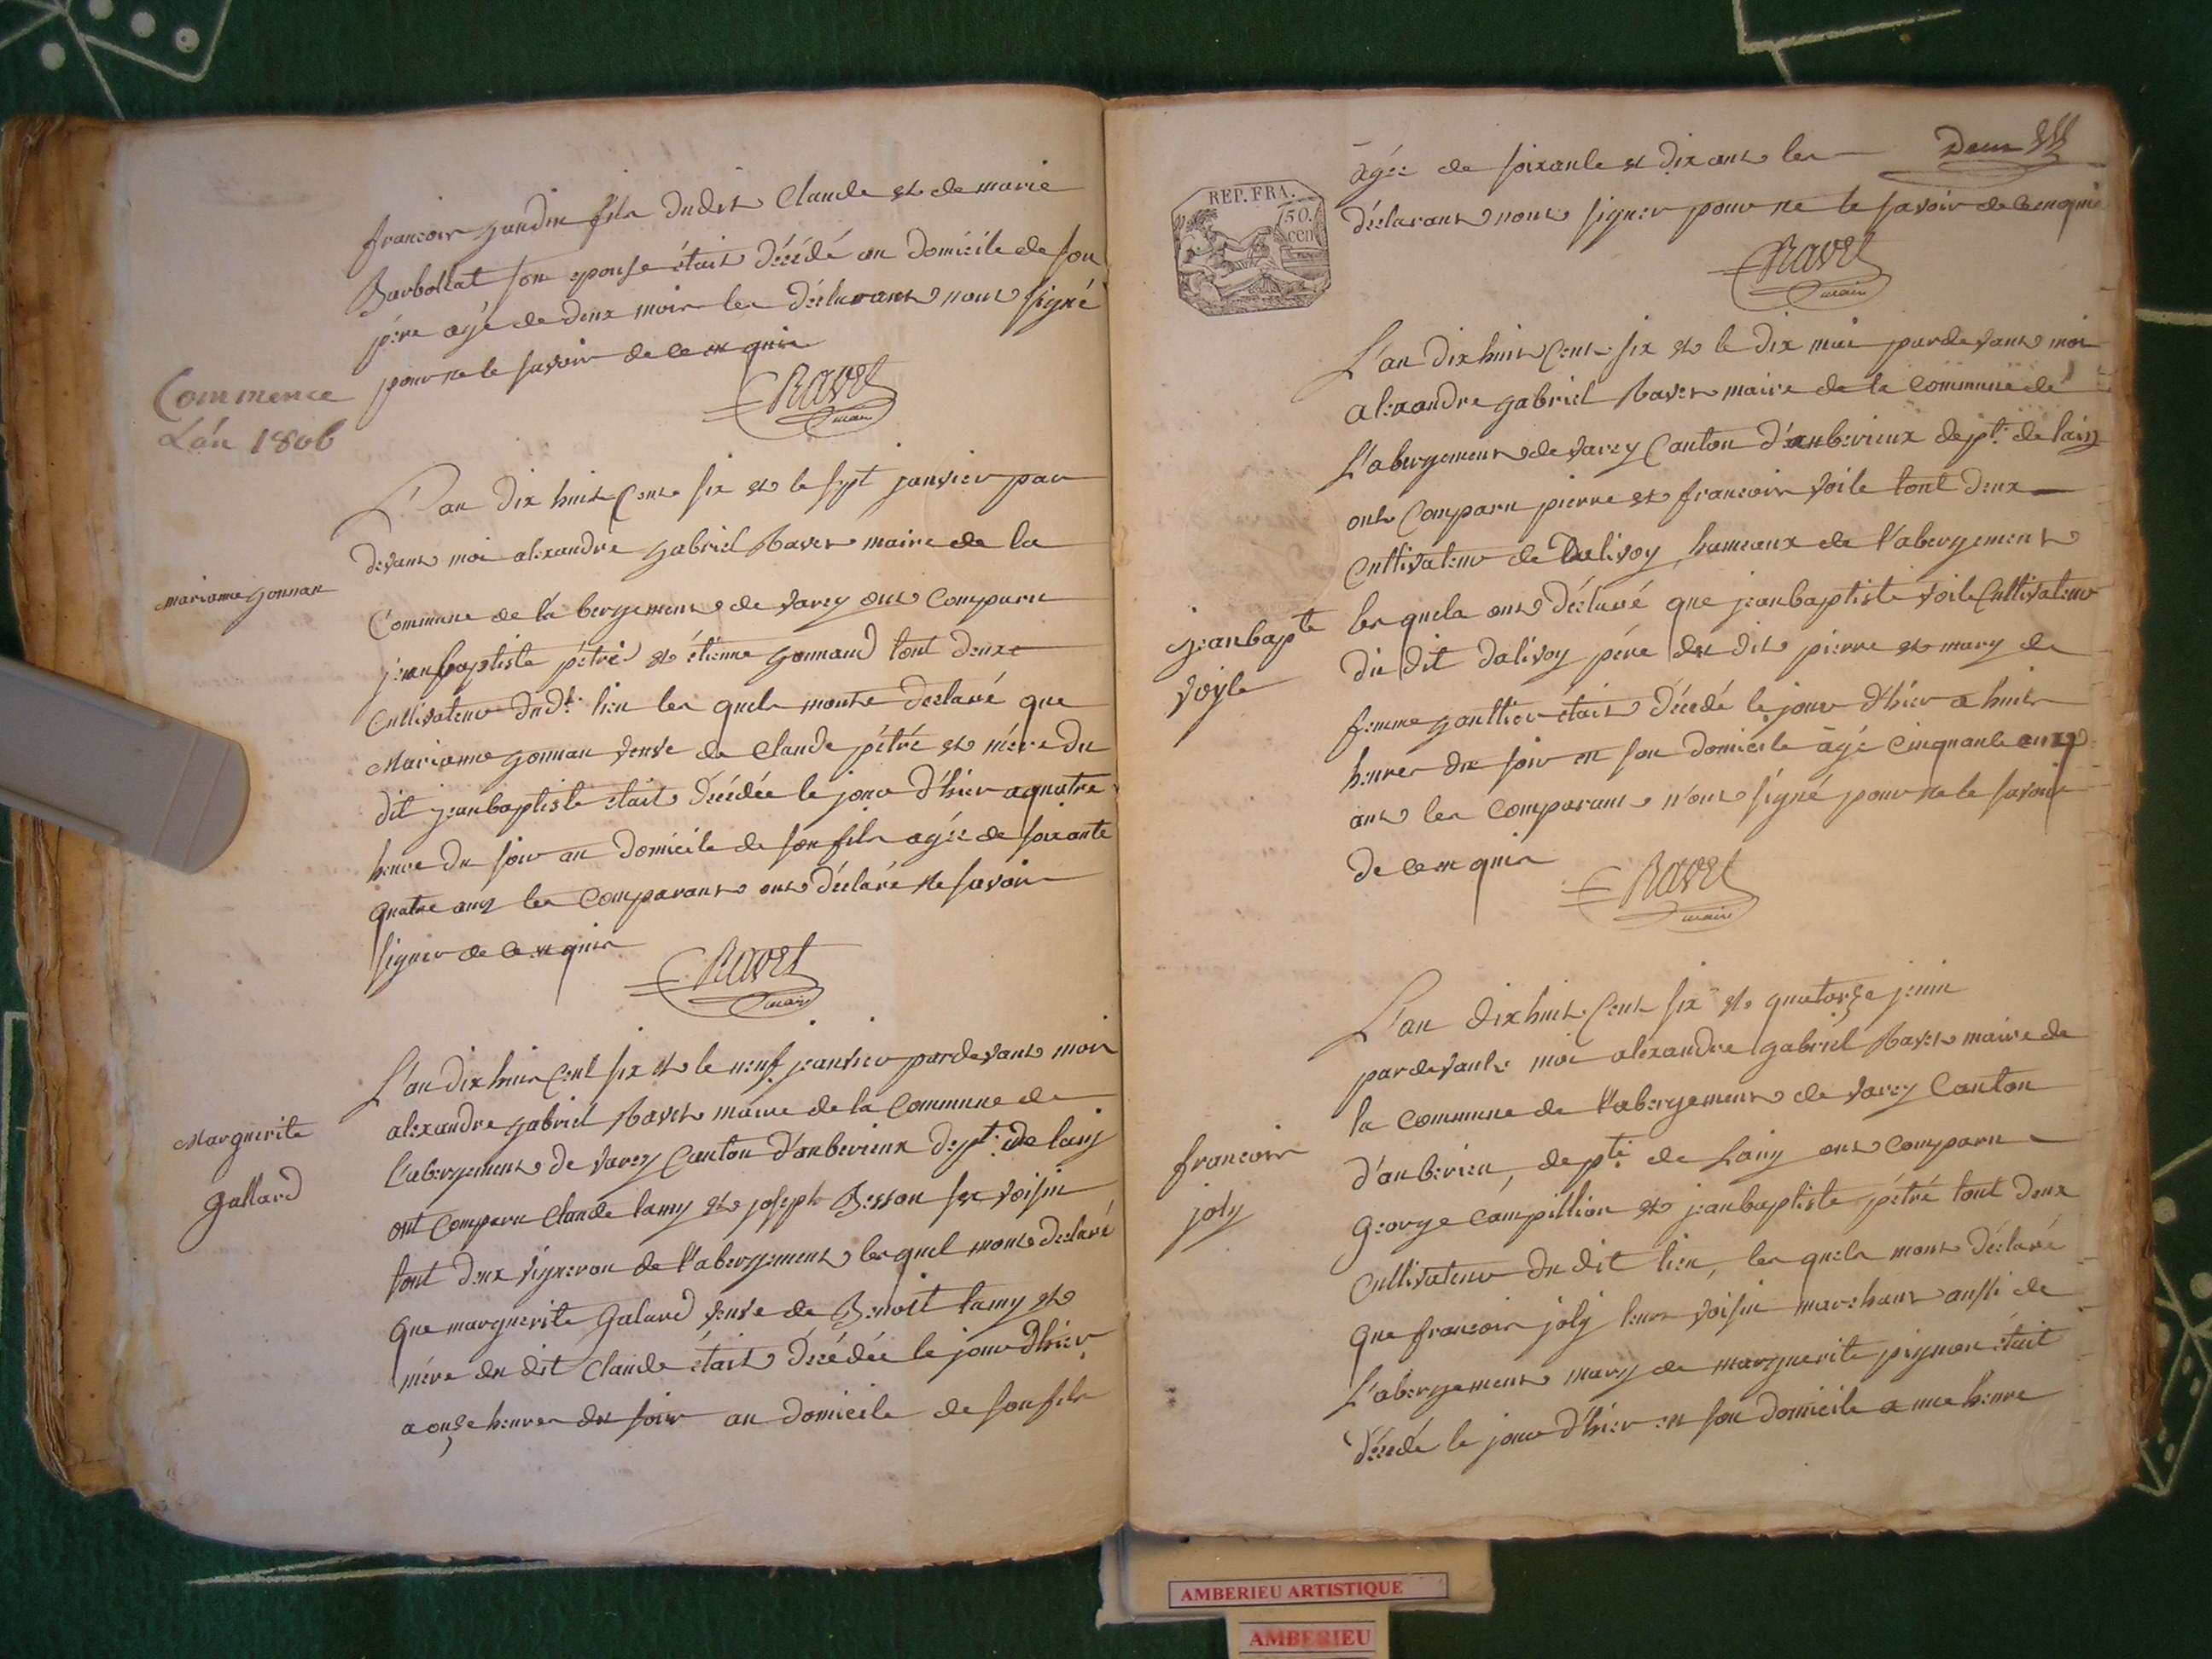 francois gandin fils dudit Claude et de marie
Barbollat son epouse était décédé au domicile de son
père agé de deux mois les déclarants n'ont signé
pour ne le savoir de ce enquis
Ravet
maire
Commence
L'án 1806
L'an dix huit cent six et le sept janvier par
devant moi alexandre gabriel Ravet maire de la
marianne gonnan
Commune de la bergement de varey ont comparu
jeanbaptiste pétré et étienne gonnand tout deux
cultivateur dudt. lieu les quels mont declaré que
Marianne gonnan veuve de Claude pétré et mére du
dit jeanbaptiste était décédée le jour d'hier a quatre
heure du soir au domicile de son fils agée de soixante
quatre ans les comparant ont déclaré ne savoir
signer de ce enquis
Ravet
maire
L'an dix huit cent six et le neuf janvier pardevant moi
alexandre gabriel Ravet maire de la commune de
Marguerite
l'abergement de varey Canton d'amberieux dept. de lain
Gallard
ont comparu Claude lamy et joseph Besson son voisin
tout deux vigneron de l'abergement lesquel mont declaré
que marguerite Galard veuve de Benoit lamy et
mére du dit Claude était décédée le jour d'hier
a onze heures du soir au domicile de son fils
Deux
REP. FRA.
50.
cen
agée de soixante et dix ans les
déclarant nont signer pour ne le savoir de ce enquis
Ravet
maire
L'an dix huit cent six et le dix mai pardevant moi
alexandre gabriel Ravet maire de la commune de
L'abergement de varey Canton d'amberieux dept. de lain
ont comparu pierre et francois voile tout deux
cultivateur de dalivoy hameaux de l'abergement
jeanbapte
les quels ont déclaré que jeanbaptiste voile cultivateur
voyle
du dit dalivoy pére du dit pierre et mary de
femme gauttier était décedé le jour d'hier a huit
heures du soir en son domicile âgé cinquante cinq
ans les comparant n'ont signé pour ne le savoir
de ce enquis
Ravet
maire
L'an dix huit cent six et quatorze juin
pardevant moi alexandre gabriel Ravet maire de
la commune de l'abergement de varey Canton
francois
d'amberieu, depte. de Lain ont comparu
joly
george campillion et jeanbaptiste pétré tout deux
cultivateur du dit lieu, les quels mont déclaré
que francois joly leur voisin marchant aussi de
L'abergement mary de marguerite pignon était
décedé le jour d'hier en son domicile a une heure
AMBERIEU ARTISTIQUE
AMBERIEU